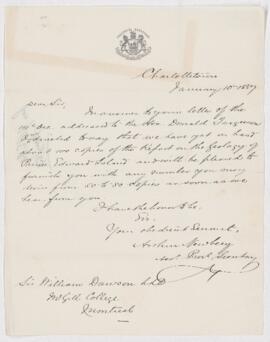 Charlottetown
January 10th 1889
Dear Sir,
In answer to your letter of the
Dec. addressed to the Hon. Donald Ferguson
I desired to say that we have yet on hand
about 100 copies of the Report on the Geology of
Prince Edward Island and will be pleased to
furnish you with any number you may
from 50 to 80 copies as soon as we
hear from you.
I have the honor to be
Sir,
Your obedient Servant,
Arthur Newbery
Asst Provl Secretary
Sir William Dawson LLD
McGill College
Montreal